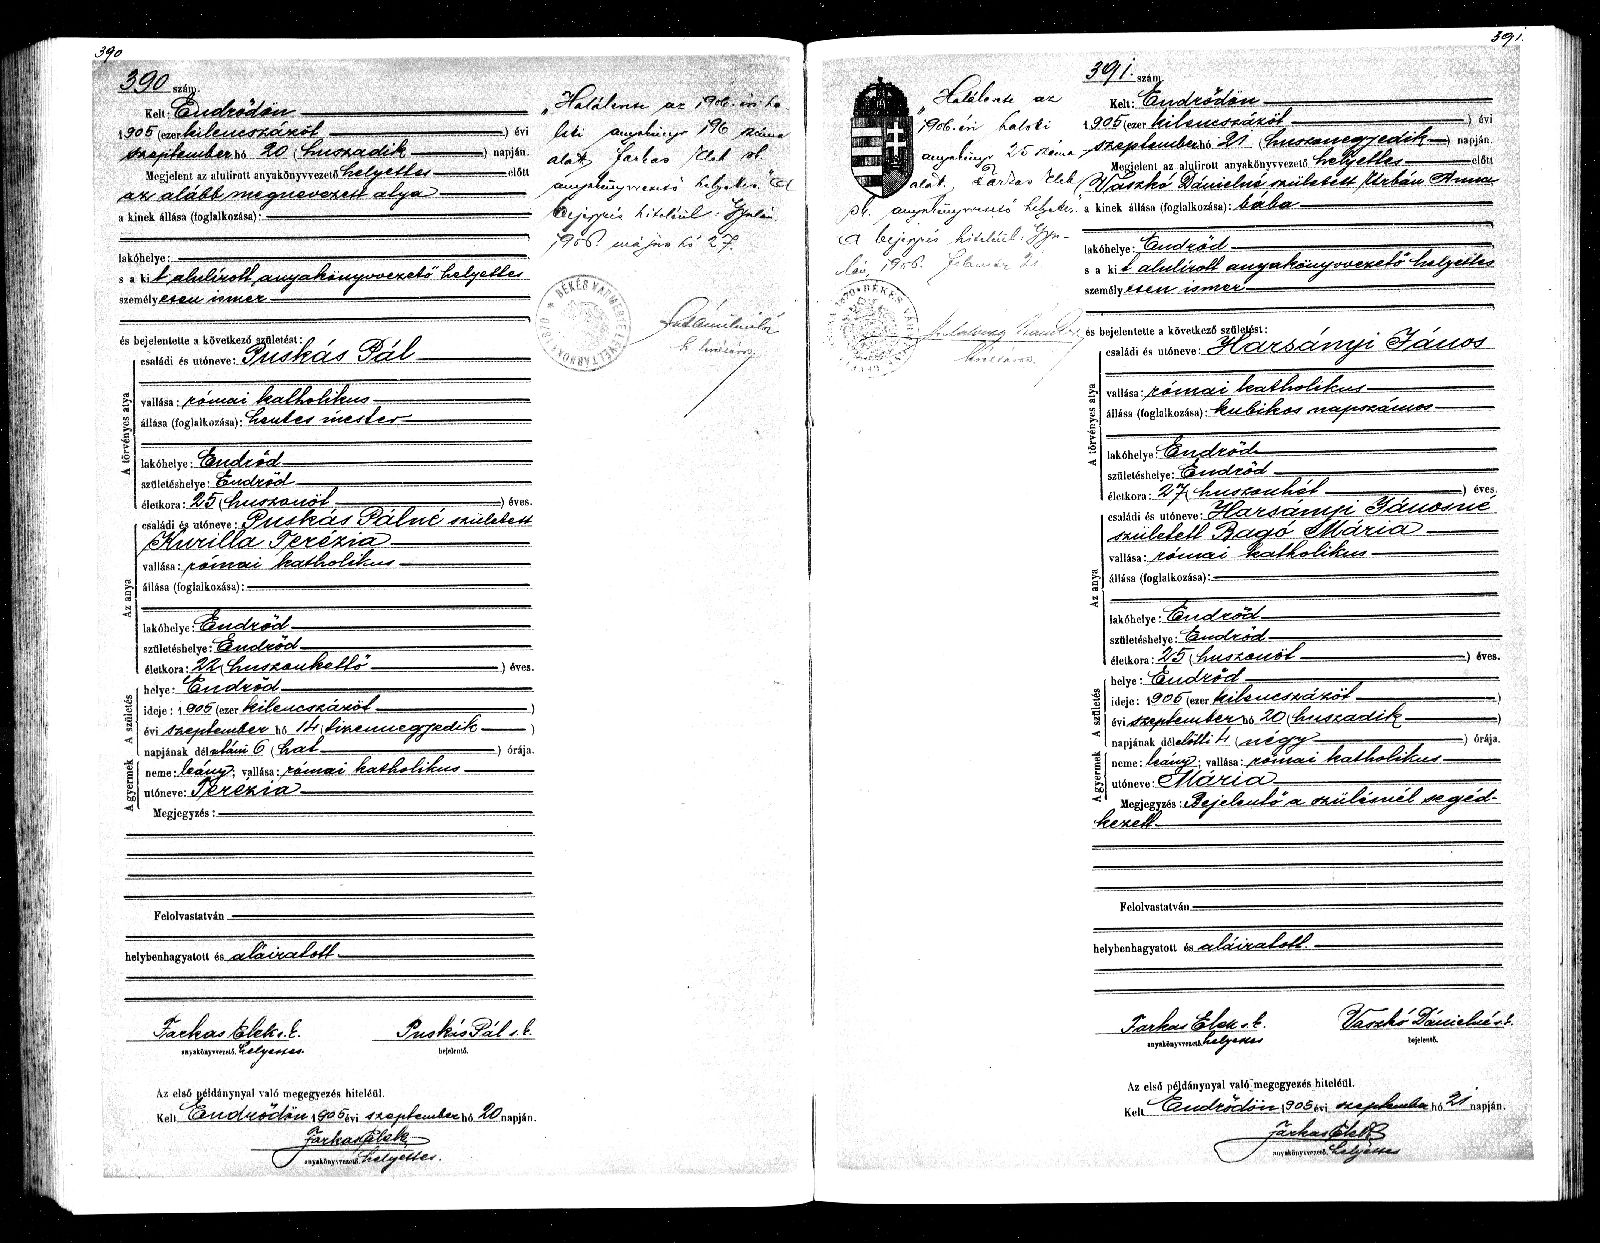 390
390 szám.
Kelt: Endrődön
1905 (ezer kilencszázöt ) évi
szeptember hó 20 (huszadik ) napján.
Megjelent az alulirott anyakönyvvezető helyettes előtt
az alább megnevezett atya
a kinek állása (foglalkozása):
lakóhelye:
s a kit alulírott anyakönyvvezető helyettes
személyesen ismer
és bejelentette a következő születést:
A törvényes atya
családi és utóneve: Puskás Pál
vallása: római katholikus
állása (foglalkozása): hentes mester
lakóhelye: Endrőd
születéshelye: Endrőd
életkora: 25 (huszonöt ) éves.
Az anya
családi és utóneve: Puskás Pálné született
Kurilla Terézia
vallása: római katholikus
állása (foglalkozása):
lakóhelye: Endrőd
születéshelye: Endrőd
életkora: 22 (huszonkettő ) éves.
A születés
helye: Endrőd
ideje: 1905 (ezer kilencszázöt )
évi szeptember hó 14 (tizennegyedik )
napjának délutáni 6 (hat ) órája.
A gyermek
neme: leány; vallása: római katholikus
utóneve: Terézia
Megjegyzés:
Felolvastatván
helybenhagyatott és aláiratott
Farkas Elek s.k. Puskás Pál s.k.
anyakönyvvezető. helyettes bejelentő.
Az első példánynyal való megegyezés hiteléül.
Kelt Endrődön 1905 évi szeptember hó 20 napján.
Farkas Elek
anyakönyvvezető. helyettes.
"Halálente az 1906. évi ha-
lotti anyakönyv 196 száma
alatt, Farkas Elek sk.
anyakönyvvezető helyettes." A
bejegyzés hiteléül. Gyulán,
1906. május hó 27.
BÉKÉS VÁRMEGYE LEVÉLTÁRNOKA 1870
391.
391. szám.
Kelt: Endrődön
1905 (ezer kilencszázöt ) évi
szeptember hó 21 (huszonegyedik ) napján.
Megjelent az alulirott anyakönyvvezető helyettes előtt
Vaszkó Dánielné született Urbán Anna
a kinek állása (foglalkozása): bába
lakóhelye: Endrőd
s a kit alulírott anyakönyvvezető helyettes
személyesen ismer
és bejelentette a következő születést:
A törvényes atya
családi és utóneve: Harsányi János
vallása: római katholikus
állása (foglalkozása): kubikos napszámos
lakóhelye: Endrőd
születéshelye: Endrőd
életkora: 27 (huszonhét ) éves.
Az anya
családi és utóneve: Harsányi Jánosné
született Ragó Mária
vallása: római katholikus
állása (foglalkozása):
lakóhelye: Endrőd
születéshelye: Endrőd
életkora: 25 (huszonöt ) éves.
A születés
helye: Endrőd
ideje: 1905 (ezer kilencszázöt )
évi szeptember hó 20 (huszadik )
napjának délelőtti 4 (négy ) órája.
A gyermek
neme: leány; vallása: római katholikus
utóneve: Mária
Megjegyzés: Bejelentő a szülésnél segéd-
kezett
Felolvastatván
helybenhagyatott és aláiratott.
Farkas Elek s.k. Vaszkó Dánielné s.k.
anyakönyvvezető. helyettes bejelentő.
Az első példánynyal való megegyezés hiteléül.
Kelt Endrődön 1905 évi szeptember hó 21 napján.
Farkas Elek
anyakönyvvezető. helyettes
"Halálente az
1906. évi halotti
anyakönyv 25 száma
alatt, Farkas Elek
sk. anyakönyvvezető helyettes."
A bejegyzés hiteléül. Gyu-
lán, 1906. február 21
1870 BÉKÉS